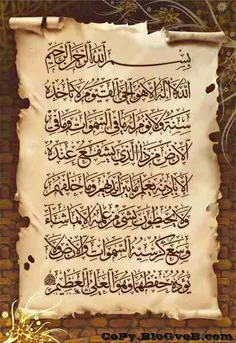 بسم الله الرحمن الرحيم
الله لا إله إلا هو الحي القيوم لا تأخذه
سنة ولا نوم له ما في السموات وما في
الأرض من ذا الذي يشفع عنده
إلا بإذنه يعلم ما بين أيديهم وما خلفهم
ولا يحيطون بشيء من علمه إلا بما شاء
وسع كرسيه السموات والأرض ولا
يؤده حفظهما وهو العلي العظيم
CoPy.BloGveB.COM